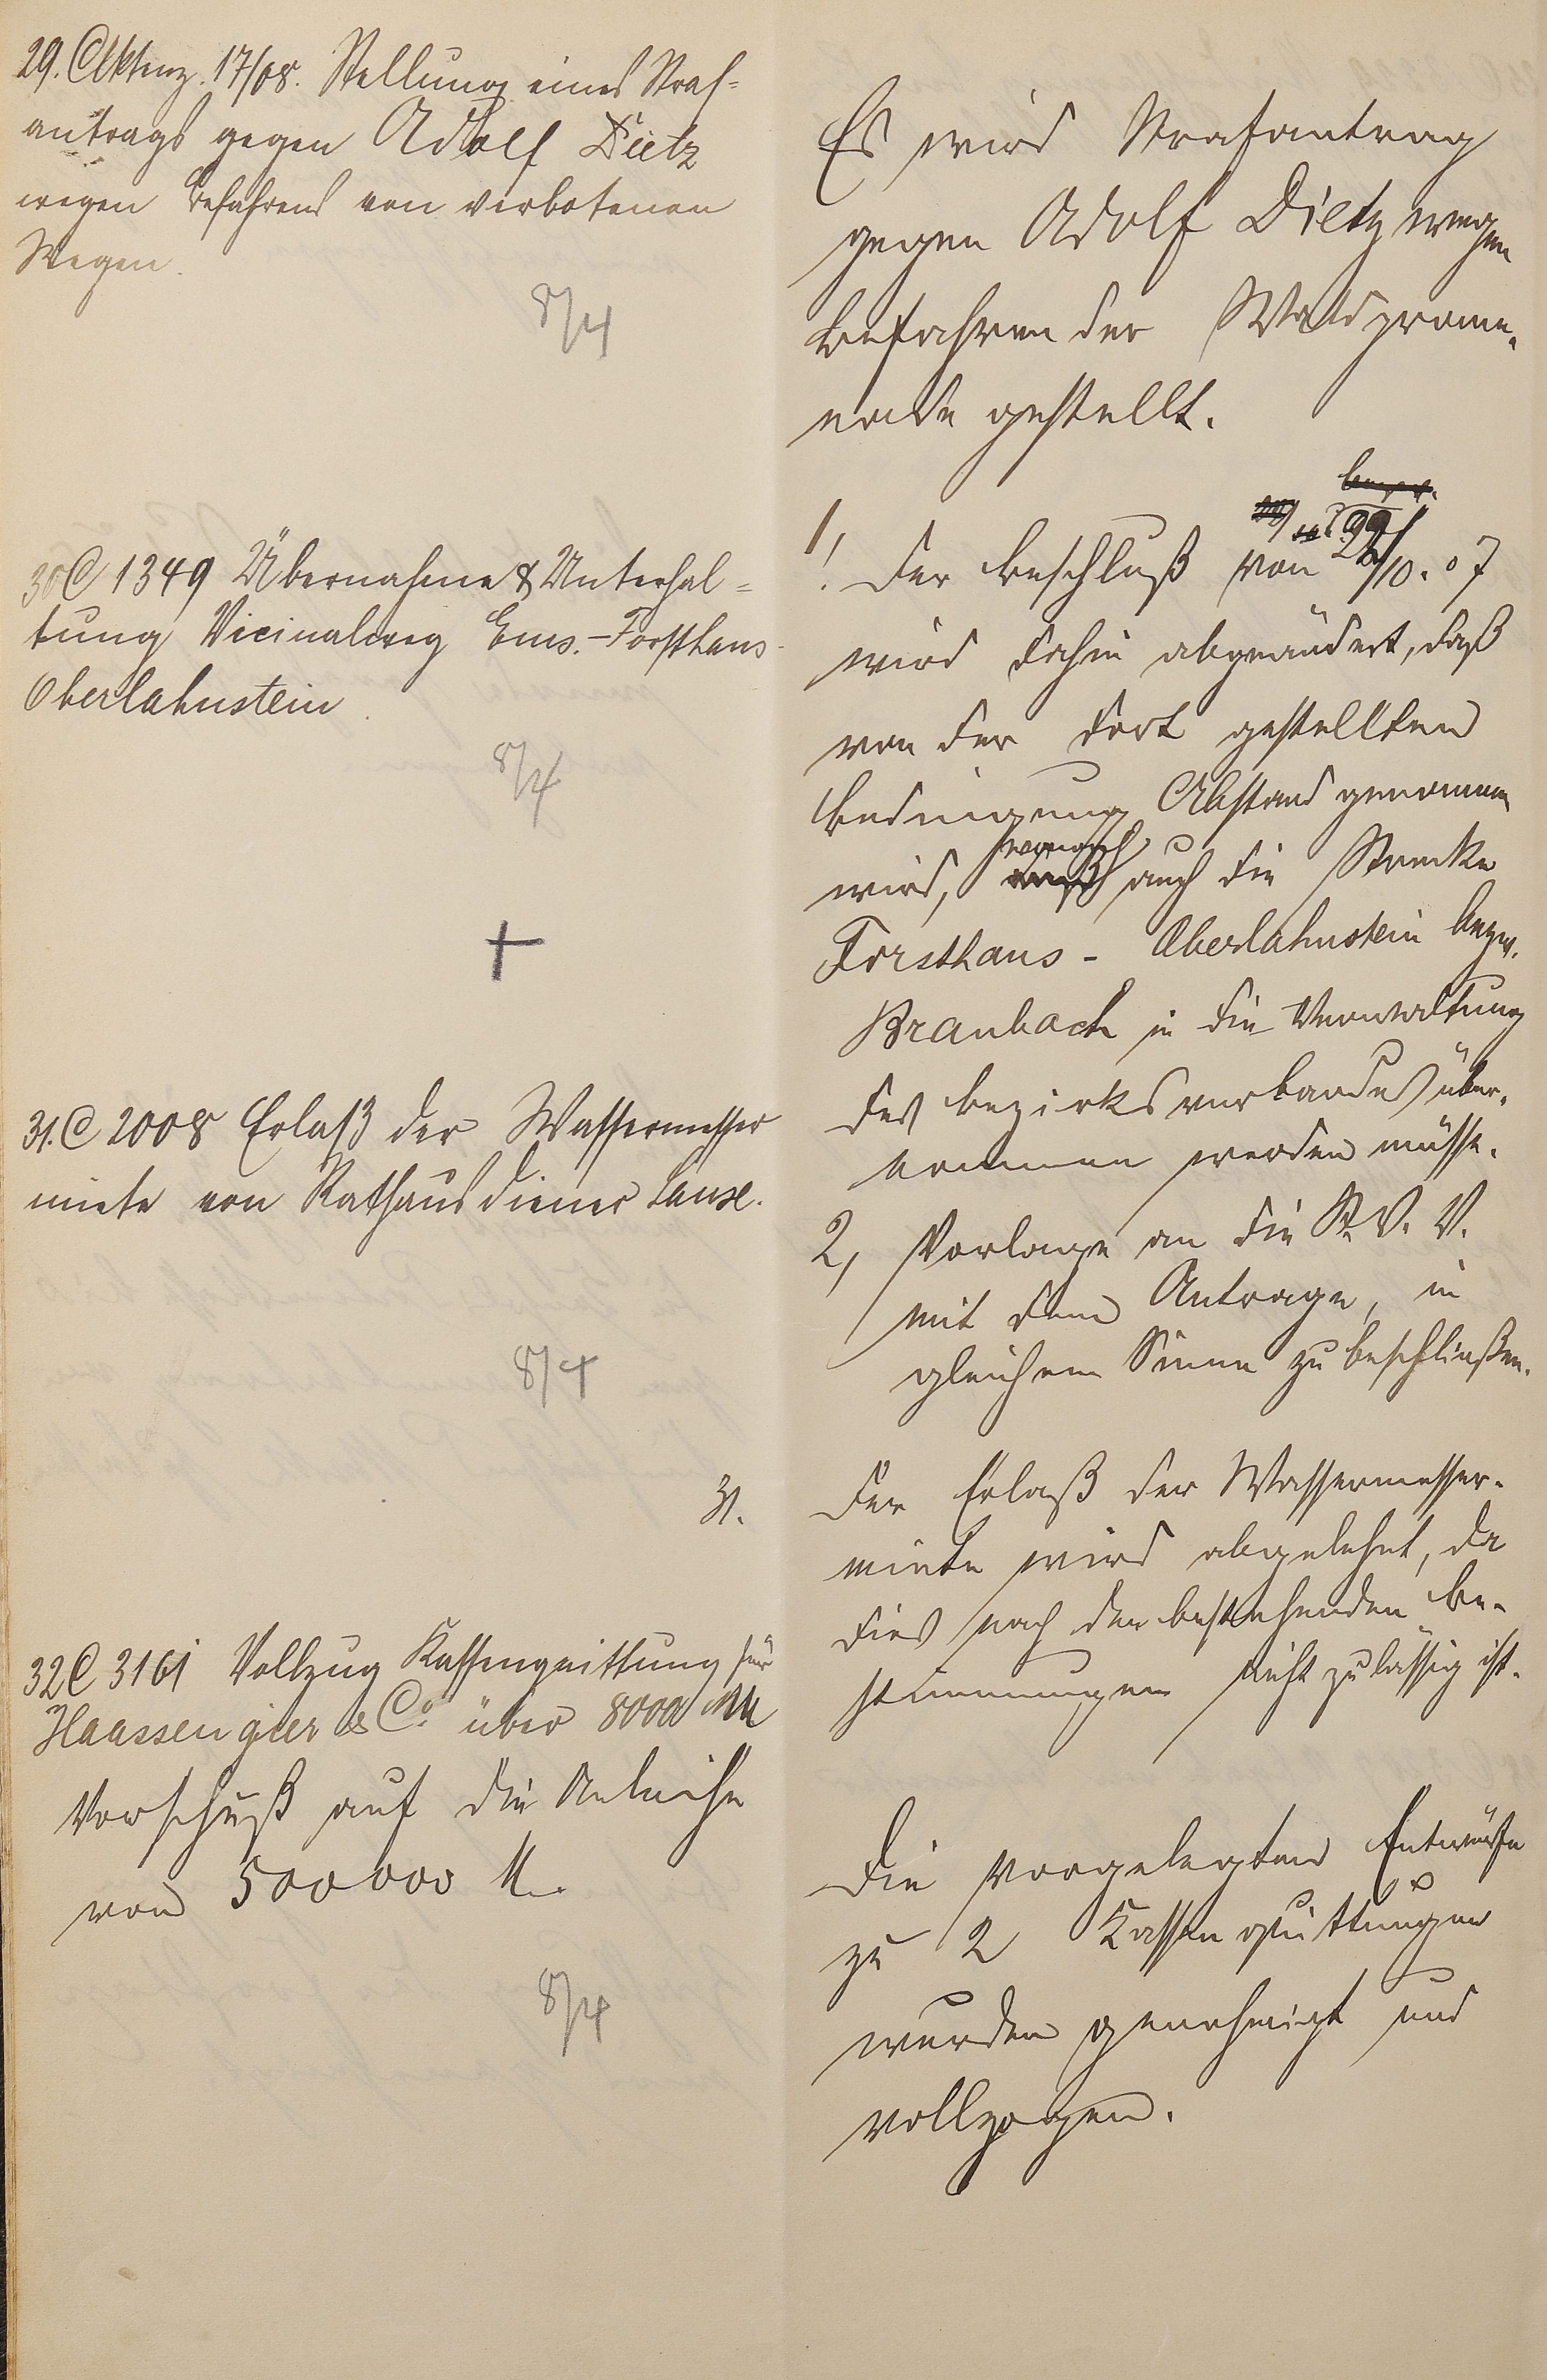 29. Aktenz. 17/08. Stellung eines Straf-
antrags gegen Adolf Dietz
wegen Befahrens von verbotenen
Wegen.
8/4
Es wird Strafantrag
gegen Adolf Dietz wegen
Befahren der Waldprome-
nade gestellt.
30 C 1349 Übernahme & Unterhal-
tung Vicinalweg Ems.-Forsthaus-
Oberlahnstein.
8/4
1,
! Der Beschluß von 22/10.07
wird dahin abgeändert, daß
von der dort gestellten
Bedingung Abstand genommen
wird, wonach auch die Strecke
Forsthaus - Oberlahnstein bezw.
Braubach in die Verwaltung
des Bezirksverbandes über-
nommen werden müsse.
2, Vorlage an die St. V. V.
mit dem Antrage, in
gleichem Sinne zu beschließen.
31. C 2008 Erlaß der Wassermesser
miete von Rathausdiener Lanse.
8/4
31.
Der Erlaß der Wassermesser-
miete wird abgelehnt, da
dies nach den bestehenden Be-
stimmungen nicht zulässig ist.
32 C 3161 Vollzug Kassenquittung für
Haassengier & Co. über 8000 M
Vorschuß auf die Anleihe
von 500000 M.
8/4
Die vorgelegten Entwürfe
zu 2 Kassenquittungen
wurden genehmigt und
vollzogen.